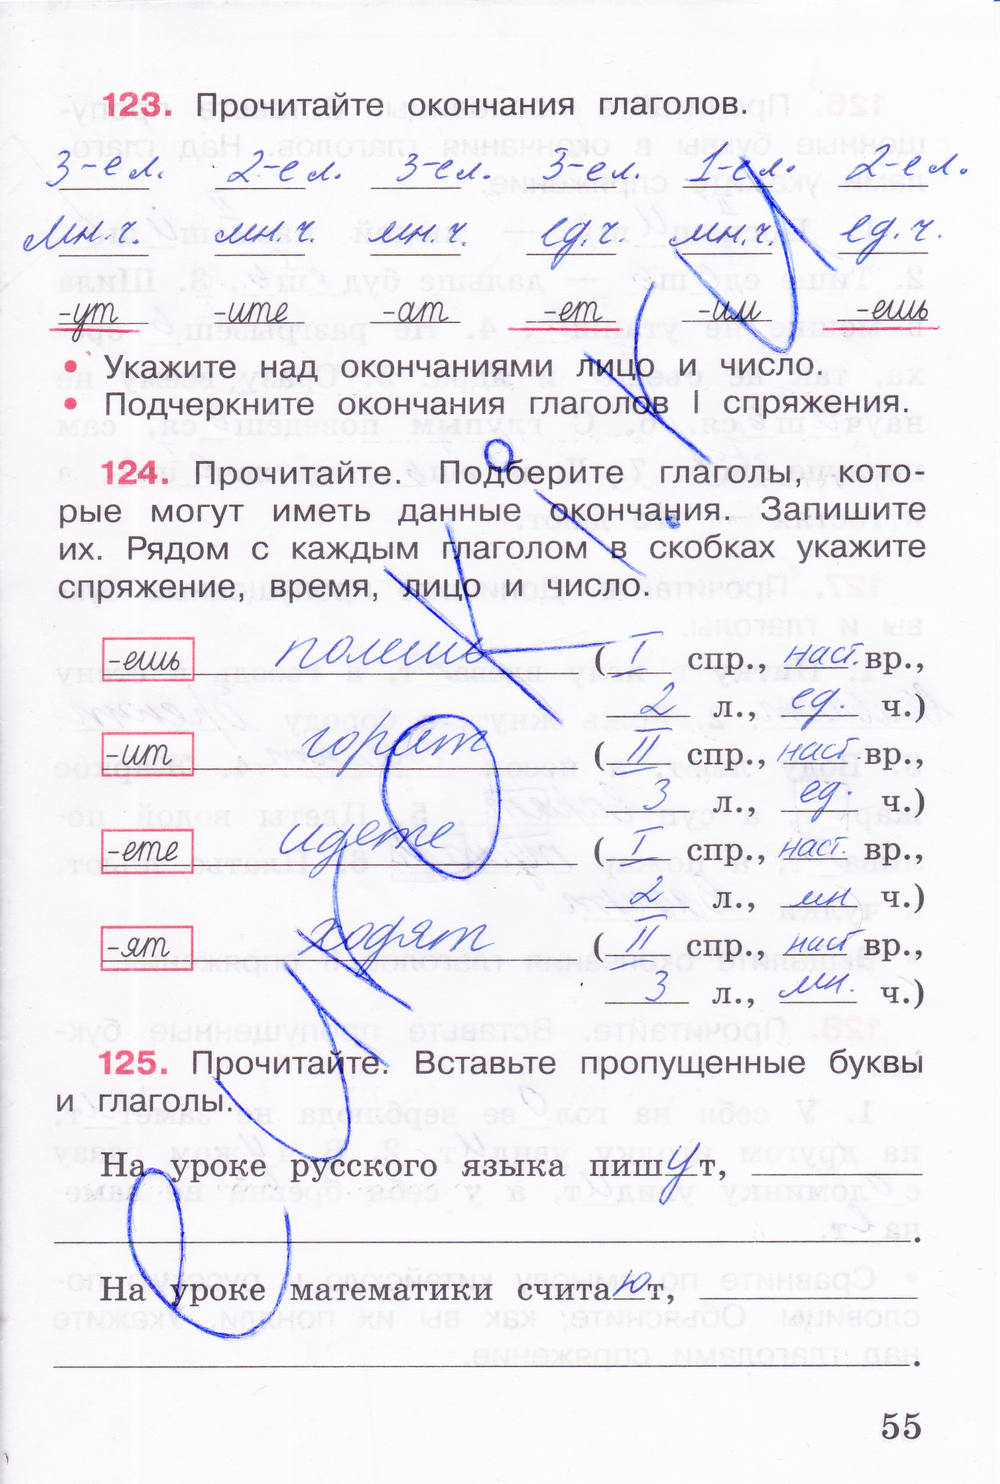 123. Прочитайте окончания глаголов.
3-е л. 2-е л. 3-е л. 3-е л. 1-е л. 2-е л.
мн.ч. мн.ч. мн.ч. ед.ч. мн.ч. ед.ч.
-ут -ите -ат -ет -им -ешь
• Укажите над окончаниями лицо и число.
• Подчеркните окончания глаголов I спряжения.
124. Прочитайте. Подберите глаголы, кото-
рые могут иметь данные окончания. Запишите
их. Рядом с каждым глаголом в скобках укажите
спряжение, время, лицо и число.
-ешь (I спр., наст. вр.,
2 л., ед. ч.)
-ит (II спр., наст вр.,
3 л., ед. ч.)
-ете идете (I спр., наст. вр.,
2 л., мн ч.)
-ят ходят (II спр., наст вр.,
3 л., мн. ч.)
125. Прочитайте. Вставьте пропущенные буквы
и глаголы.
На уроке русского языка пишут,
.
На уроке математики считают,
.
55